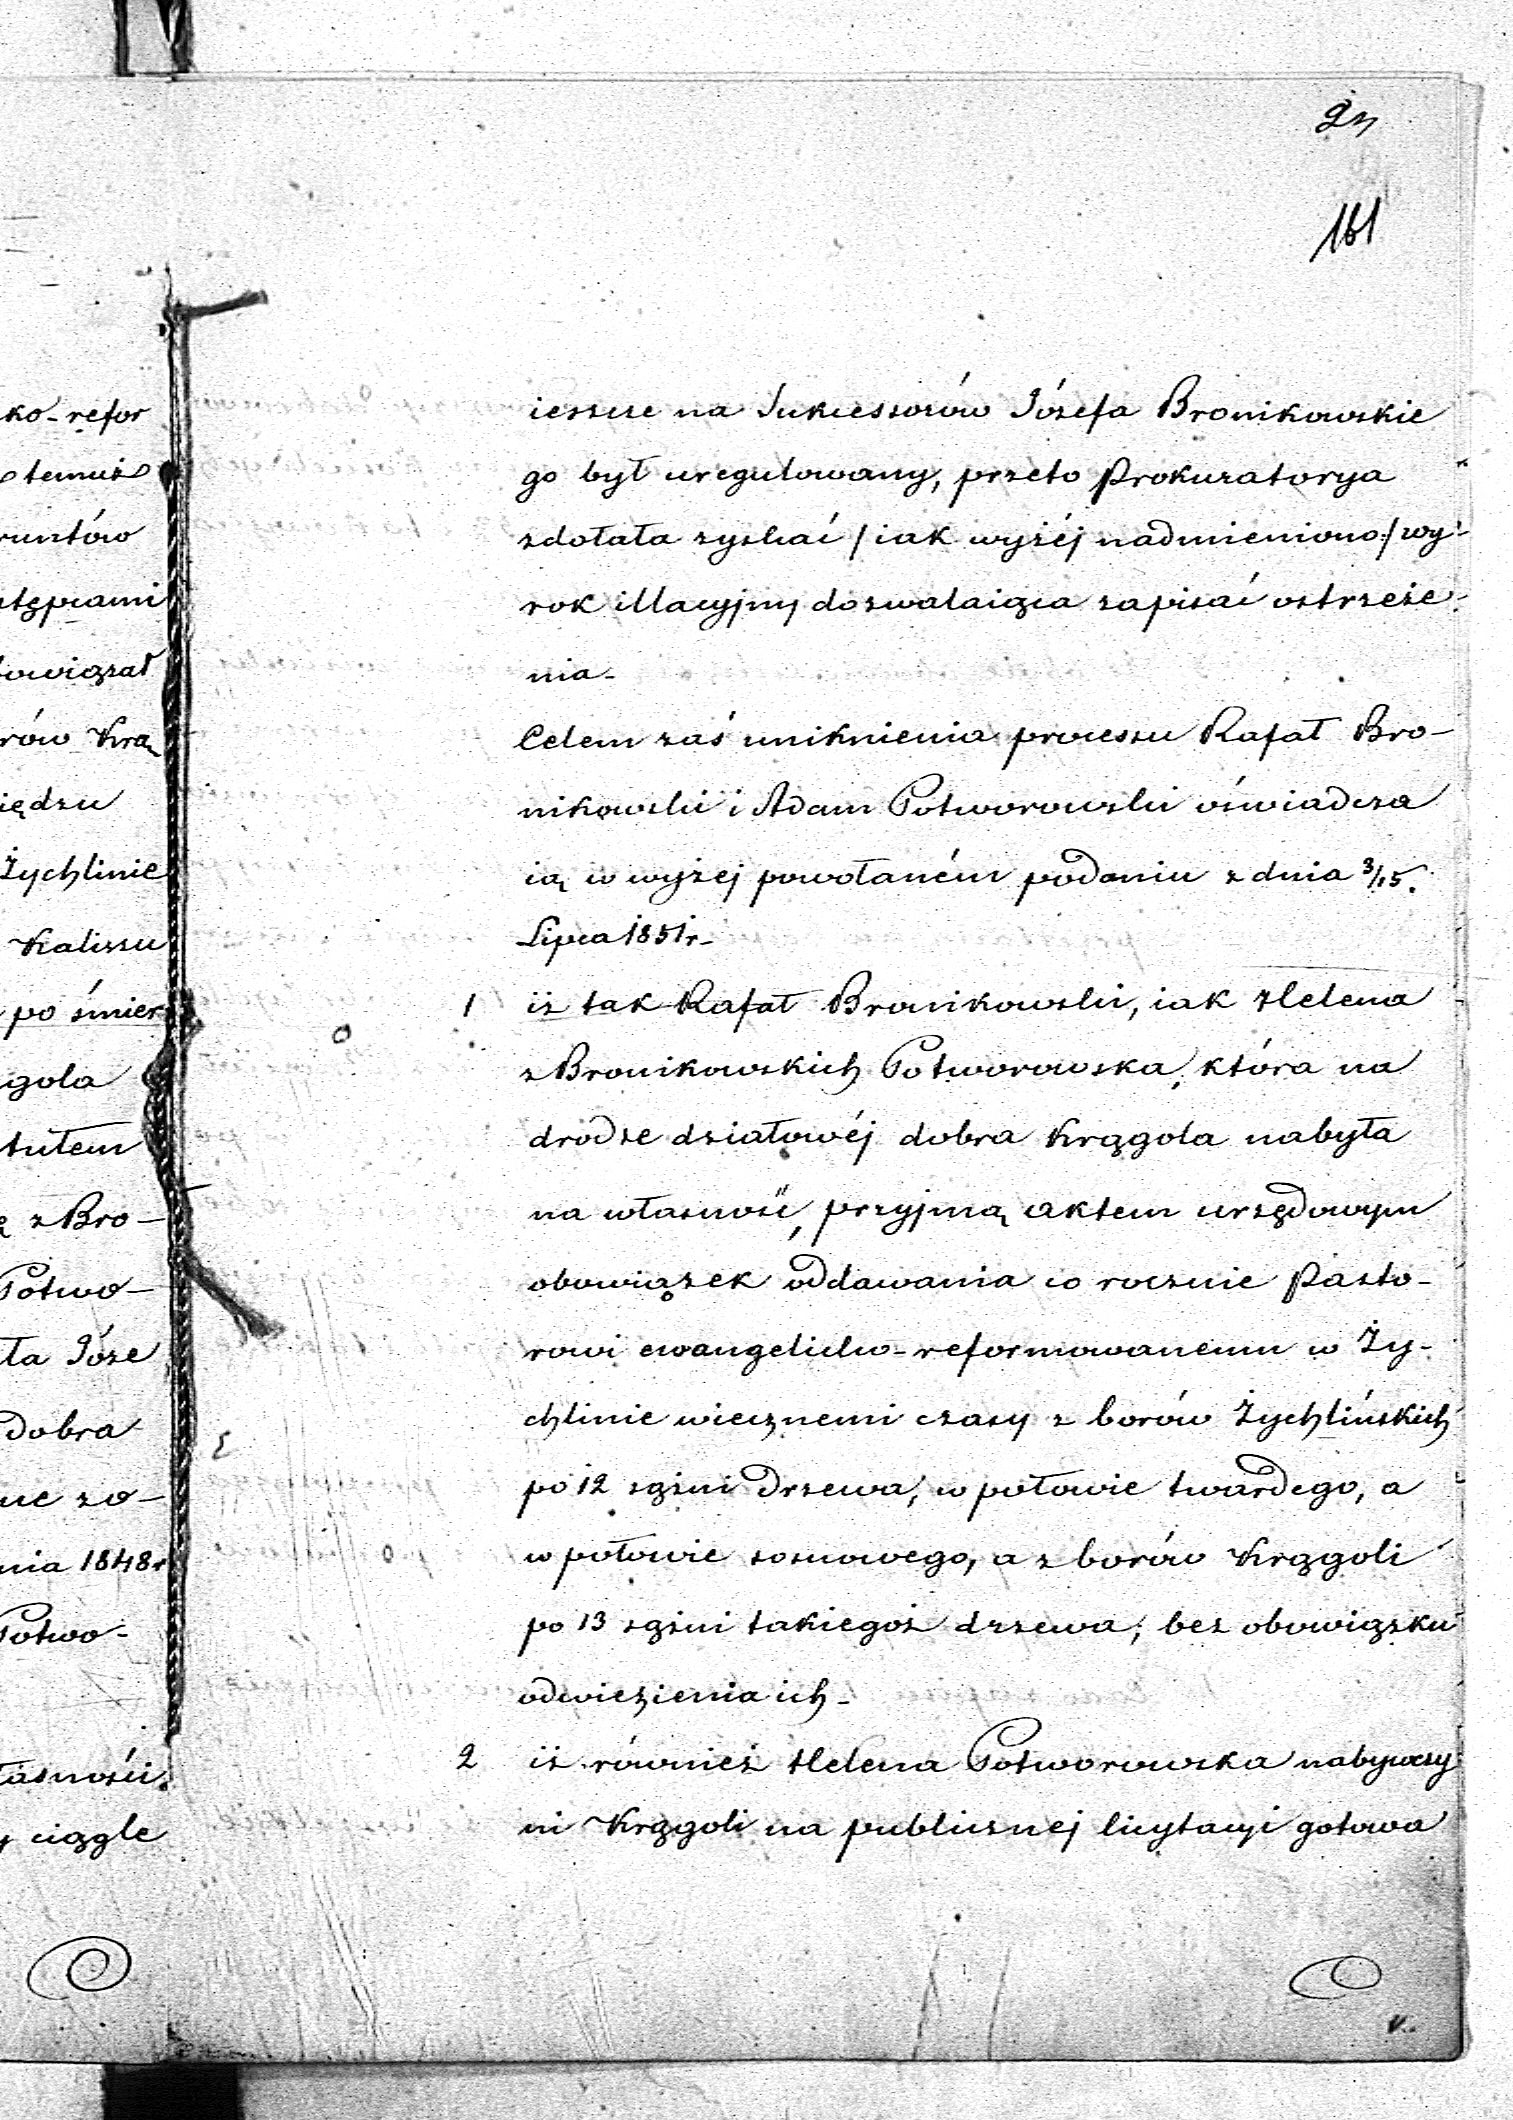 161
ko-refor
temuż
runtów
stępcami
owiązał
rów Krą
iędzu
Żychlinie
Kaliszu
po śmier
gola
tułem
z Bro-
Potwo-
ła Józe
dobra
ne zo-
nia 1848r
Potwo-
łasności
ciągle
ieszcze na Sukcessorów Józefa Bronikowskie
go był uregulowany, przeto Prokuratorya
zdołała zyskać /iak wyżéj nadmieniono/ wy-
rok illacyjny dozwalaiąca zapisać ostrzeże-
nia-
Celem zaś uniknienia processu Rafał Bro-
nikowski i Adam Potworowski oświadcza
ią w wyżej powołaném podaniu z dnia 3/15.
Lipca 1851r-
1 iż tak Rafał Bronikowski, iak Helena
z Bronikowskich Potworowska, która na
drodze działowéj dobra Krągola nabyła
na własność, przyjmą aktem urzędowym
obowiązek oddawania co rocznie Pasto-
rowi ewangelicko-reformowanemu w Ży-
chlinie wiecznemi czasy z borów Żychlińskich
po 12 sążni drzewa, w połowie twardego, a
w połowie sosnowego, a z borów Krągoli
po 13 sążni takiegoż drzewa, bez obowiązku
odwiezienia ich-
2 iż również Helena Potworowska nabywczy
ni Krągoli na publicznej licytacyi gotowa